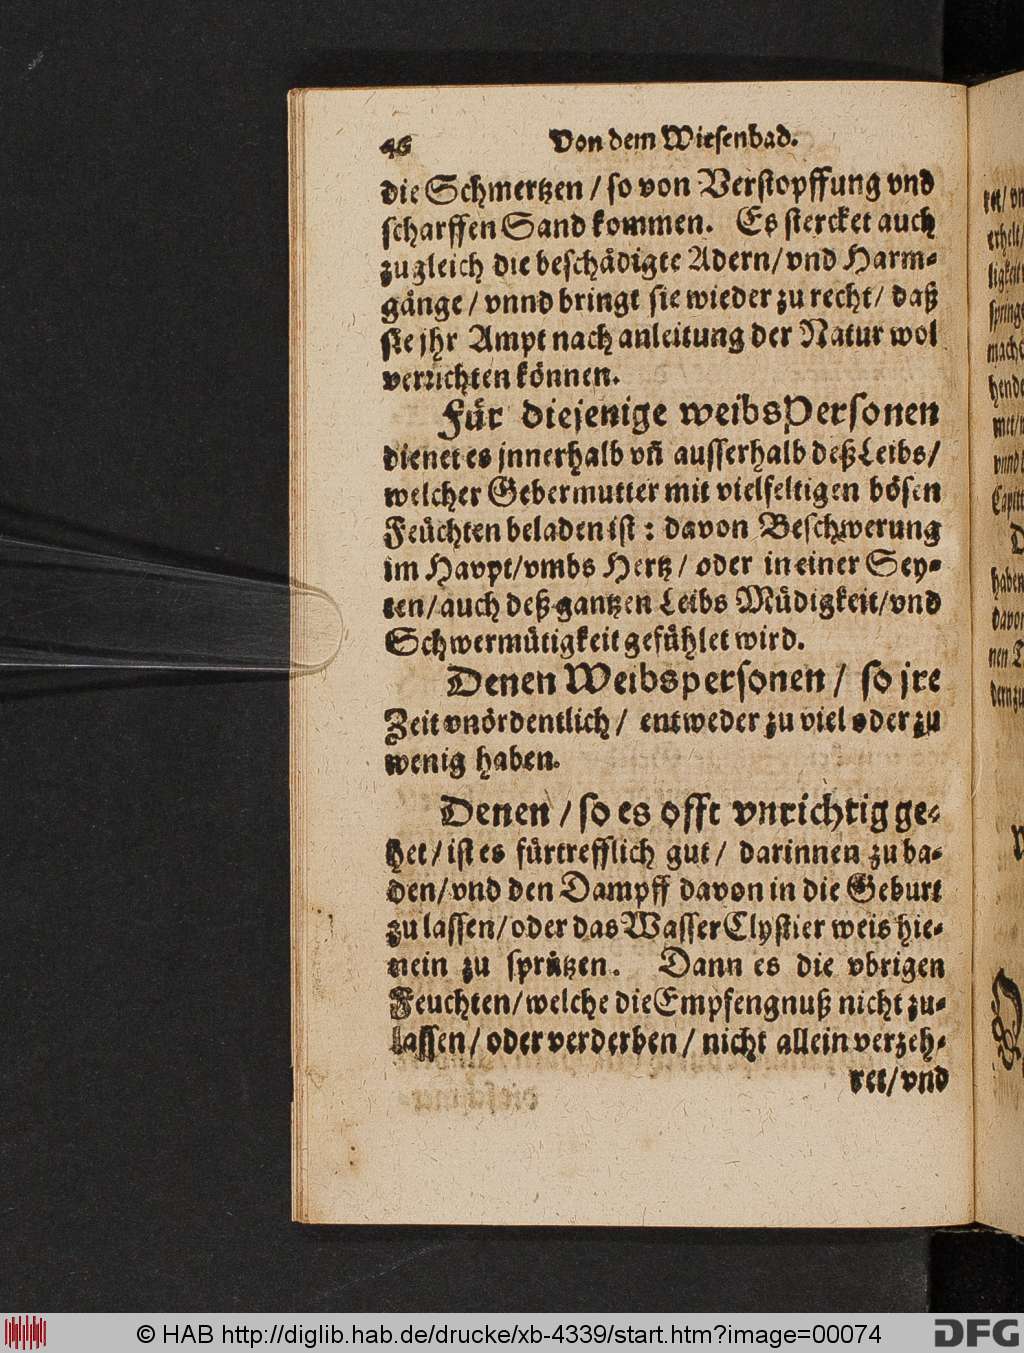 46 Von dem Wiesenbad.
die Schmertzen / so von Verstopffung vnd
scharffen Sand kommen. Es stercket auch
zugleich die beschädigte Adern/ vnd Harm-
gänge / vnnd bringt sie wieder zu recht/ daß
sie jhr Ampt nach anleitung der Natur wol
verrichten können.
Für diejenige weibsPersonen
dienet es jnnerhalb vñ ausserhalb deß Leibs/
welcher Gebermutter mit vielfeltigen bösen
Feüchten beladen ist : davon Beschwerung
im Havpt/vmbs Hertz / oder in einer Sey-
ten/ auch deß gantzen Leibs Müdigkeit/vnd
Schwermütigkeit gefühlet wird.
Denen Weibspersonen / so jre
Zeit vnördentlich / entweder zu viel oder zu
wenig haben.
Denen / so es offt vnrichtig ge-
het / ist es fürtrefflich gut / darinnen zu ba-
den/ vnd den Dampff davon in die Geburt
zu lassen/ oder das Wasser Clystier weis hie-
nein zu sprützen. Dann es die vbrigen
Feuchten/ welche die Empfengnuß nicht zu-
lassen / oder verderben / nicht allein verzeh-
ret/ vnd
ret/ vn
erhelt/
machē
haben
© HAB http://diglib.hab.de/drucke/xb-4339/start.htm?image=00074
DFG